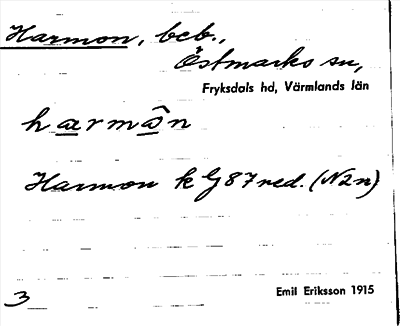 Harmon, bcb.,
Östmarks sn,
Fryksdals hd, Värmlands län
harmân
Harmon k G 87 red. (N2n)
3
Emil Eriksson 1915